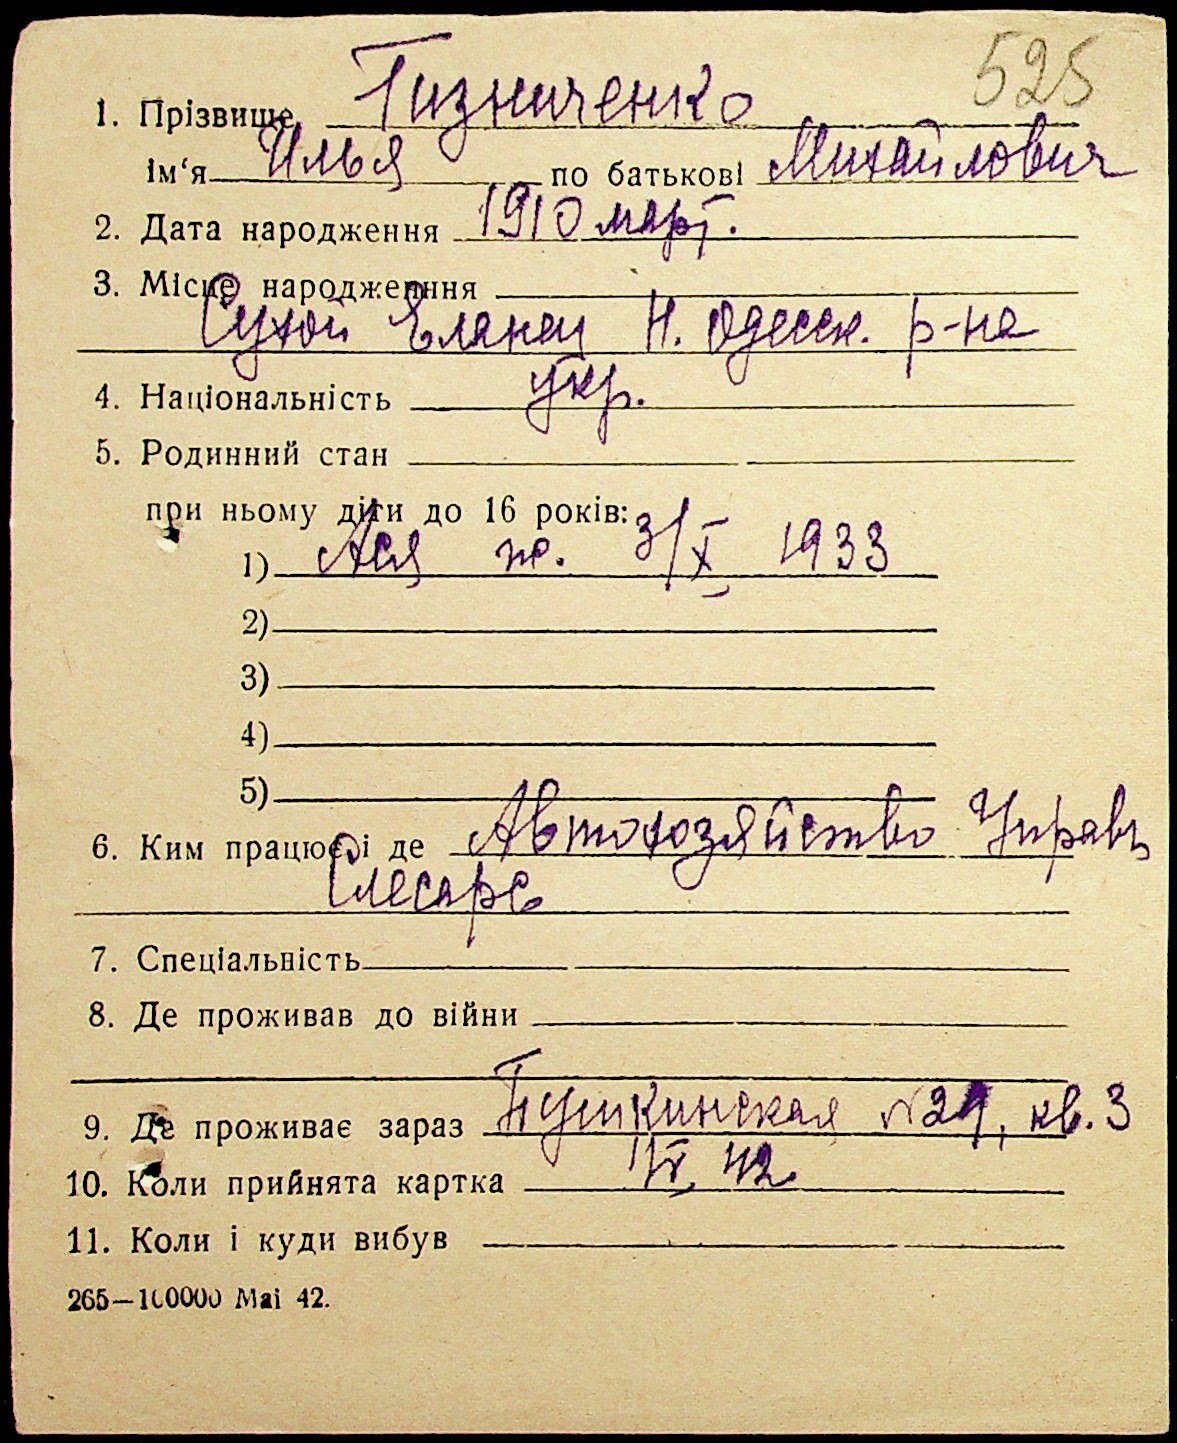 525
1. Прізвище Гизниченко
ім'я Илья по батькові Михайлович
2. Дата народження 1910 март.
3. Місце народженння
Сухой Еланец Н. Одесск. р-на
4. Національність укр.
5. Родинний стан
при ньому діти до 16 років:
1) Ася ж. 3/X 1933
2)
3)
4)
5)
6. Ким працює і де Автохозяйство Управ
Слесарь
7. Спеціальність
8. Де проживав до війни
9. Де проживає зараз Пушкинская №29, кв. 3
10. Коли прийнята картка 42
11. Коли і куди вибув
265—100000 Маі 42.